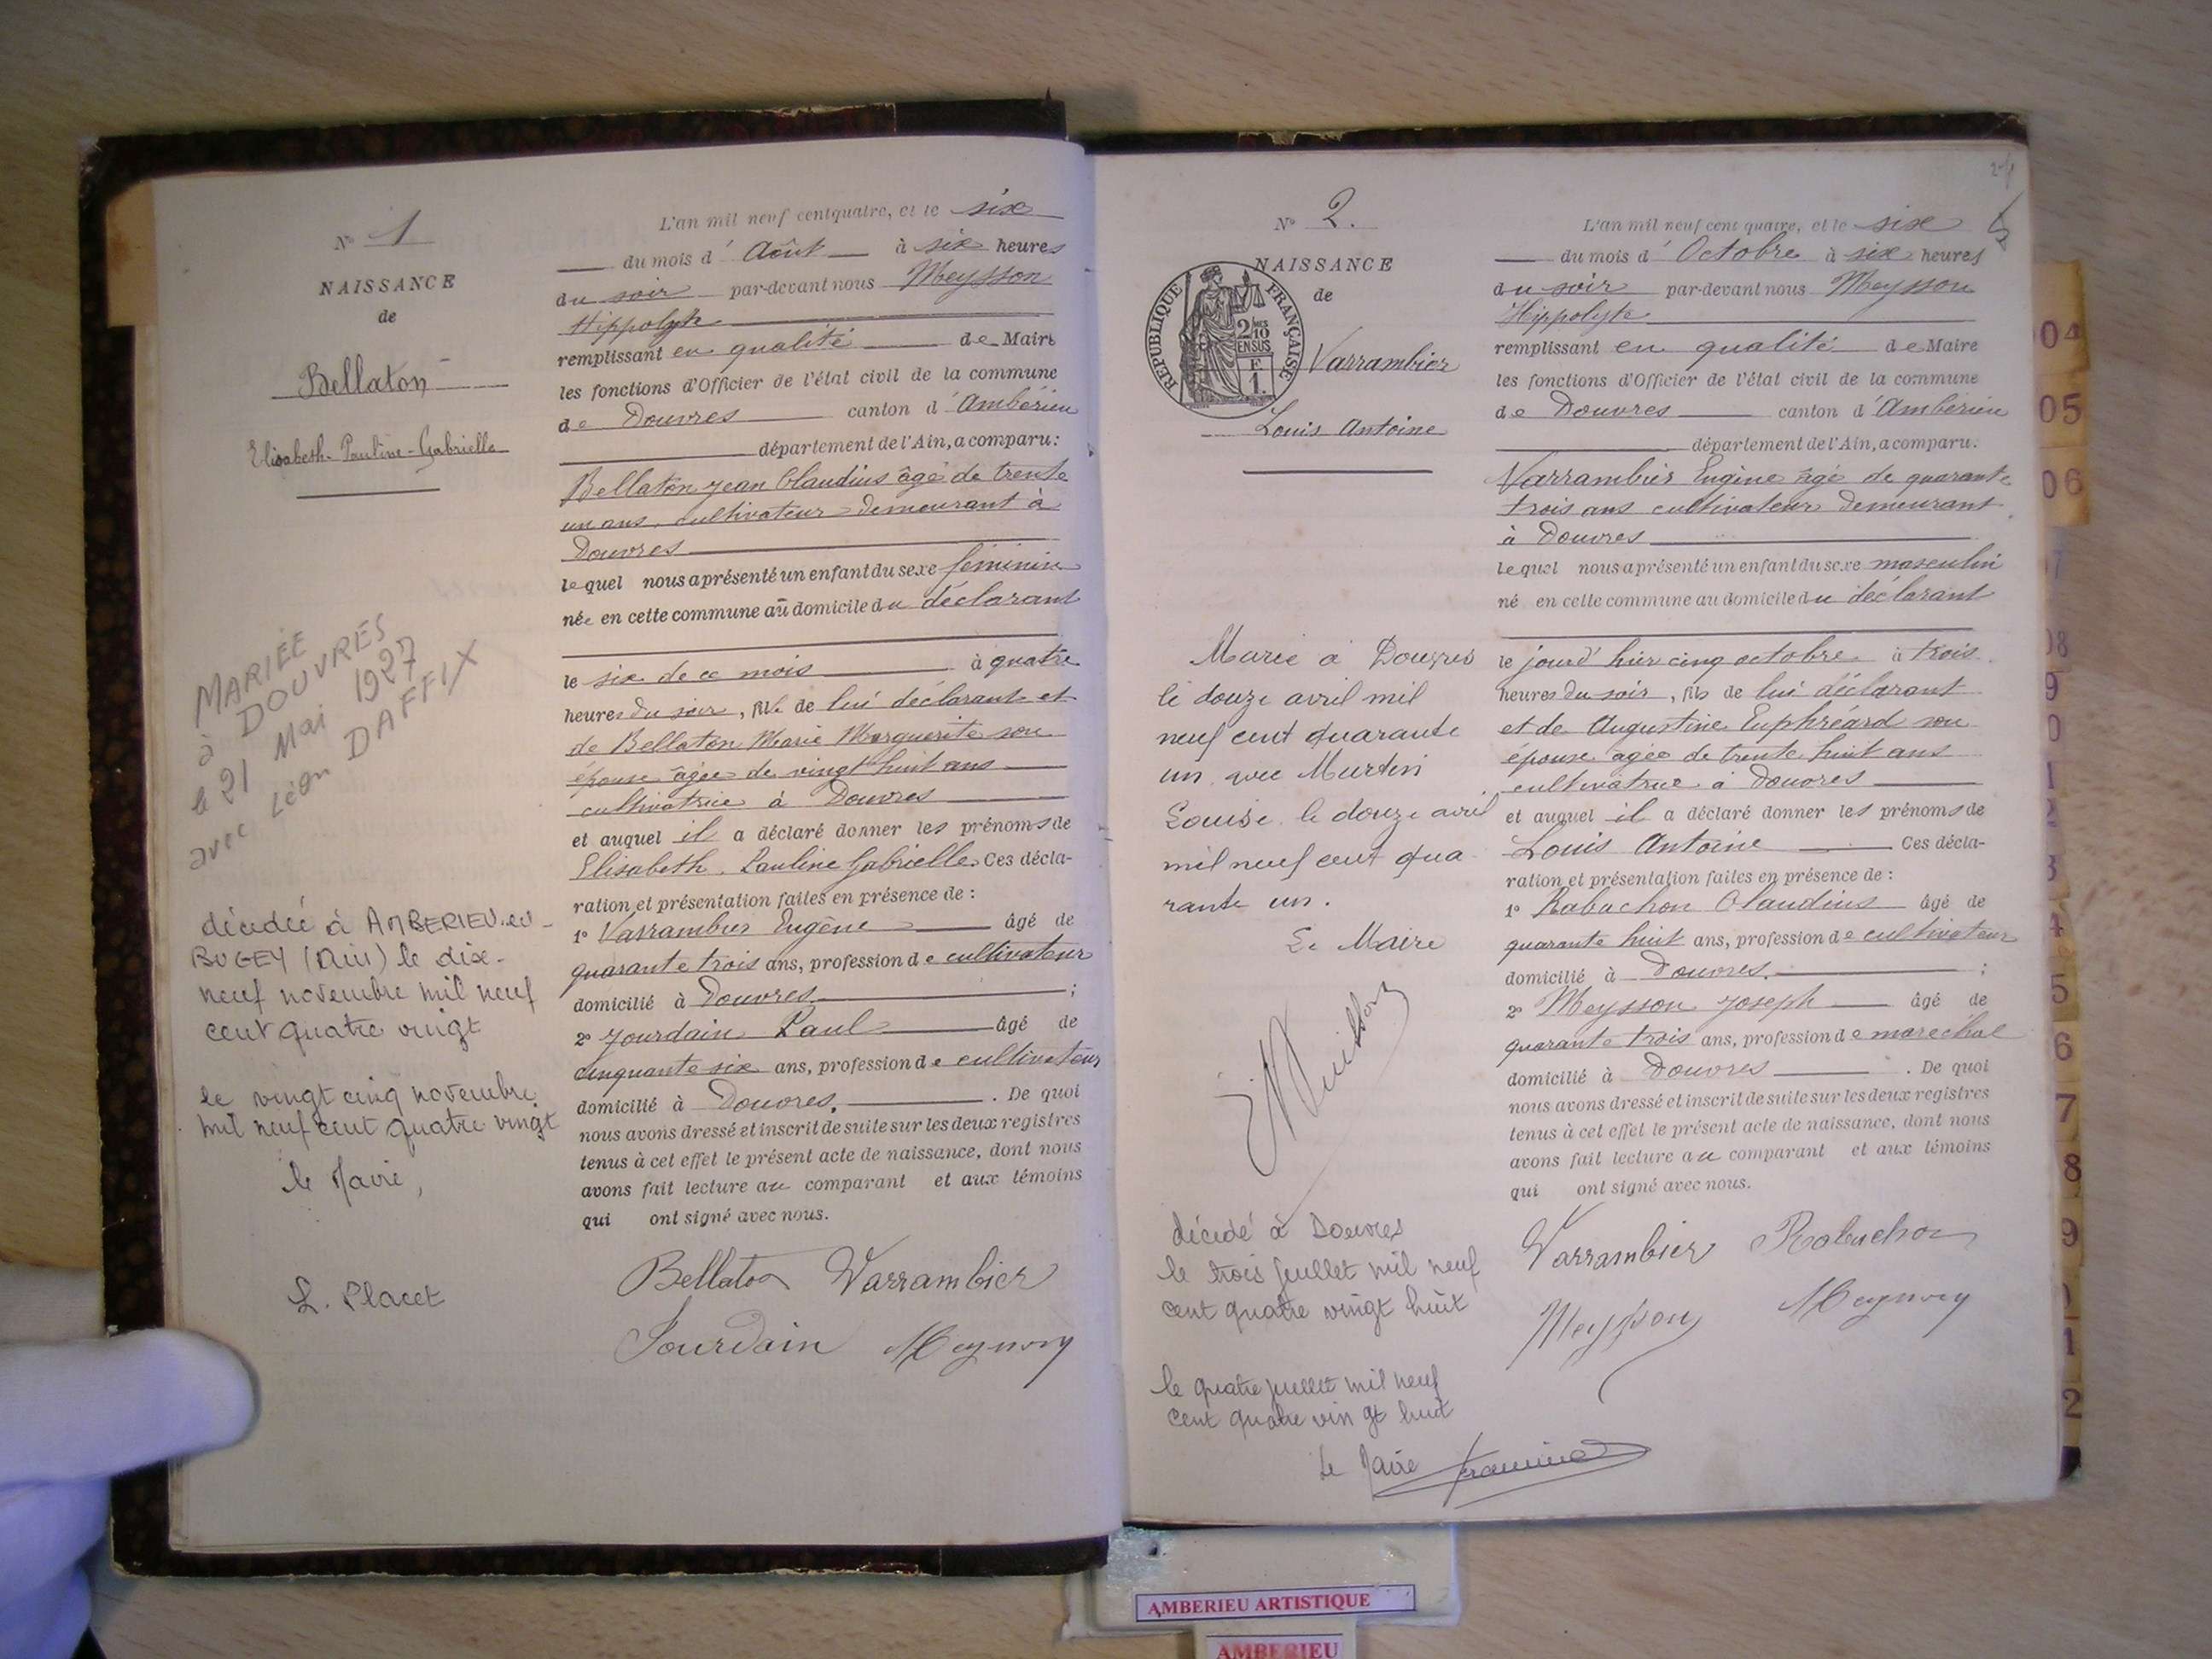 N° 1
NAISSANCE
de
Bellaton
Elisabeth-Pauline-Gabrielle
MARIÉE
à DOUVRES
le 21 Mai 1927
avec Léon DAFFIX
décédée à AMBERIEU-en-
BUGEY (Ain) le dix-
neuf novembre mil neuf
cent quatre vingt
le vingt cinq novembre
mil neuf cent quatre vingt
le Maire,
L. Placet
L'an mil neuf cent quatre, et le six
du mois d'Août à six heures
du soir par-devant nous Meysson
Hippolyte
remplissant en qualité de Maire
les fonctions d'Officier de l'état civil de la commune
de Douvres canton d'Ambérieu
département de l'Ain, a comparu:
Bellaton Jean Claudius âgé de trente
un ans, cultivateur demeurant à
Douvres
lequel nous a présenté un enfant du sexe féminin
née en cette commune au domicile du déclarant
le six de ce mois à quatre
heures du soir, fille de lui déclarant et
de Bellaton Marie Marguerite son
épouse âgée de vingt huit ans
cultivatrice à Douvres
et auquel il a déclaré donner les prénoms de
Elisabeth Pauline Gabrielle. Ces décla-
ration et présentation faites en présence de :
1° Varrambier Eugène âgé de
quarante trois ans, profession de cultivateur
domicilié à Douvres ;
2° Jourdain Paul âgé de
cinquante six ans, profession de cultivateur
domicilié à Douvres. . De quoi
nous avons dressé et inscrit de suite sur les deux registres
tenus à cet effet le présent acte de naissance, dont nous
avons fait lecture au comparant et aux témoins
qui ont signé avec nous.
Bellaton Varrambier
Jourdain Meysson
N° 2.
NAISSANCE
de
REPUBLIQUE FRANÇAISE
2/10
EN SUS
E
1
Varrambier
Louis Antoine
Marié à Douvres
le douze avril mil
neuf cent quarante
un avec Martin
Louise le douze avril
mil neuf cent qua
rante un.
Le Maire
décédé à Douvres
le trois juillet mil neuf
cent quatre vingt huit
le quatre juillet mil neuf
cent quatre vingt huit
Le Maire
L'an mil neuf cent quatre, et le six
du mois d'Octobre à six heures
du soir par-devant nous Meysson
Hippolyte
remplissant en qualité de Maire
les fonctions d'Officier de l'état civil de la commune
de Douvres canton d'Ambérieu
département de l'Ain, a comparu:
Varrambier Eugène âgé de quarante
trois ans cultivateur demeurant
à Douvres
lequel nous a présenté un enfant du sexe masculin
né en cette commune au domicile du déclarant
le jour d'hier cinq octobre à trois
heures du soir, fils de lui déclarant
et de Augustine Euphréard son
épouse âgée de trente huit ans
cultivatrice à Douvres
et auquel il a déclaré donner les prénoms de
Louis Antoine Ces décla-
ration et présentation faites en présence de :
1° Rabuchon Claudius âgé de
quarante huit ans, profession de cultivateur
domicilié à Douvres. ;
2° Meysson Joseph âgé de
quarante trois ans, profession de maréchal
domicilié à Douvres . De quoi
nous avons dressé et inscrit de suite sur les deux registres
tenus à cet effet le présent acte de naissance, dont nous
avons fait lecture au comparant et aux témoins
qui ont signé avec nous.
Varrambier Rabuchon
Meysson Meysson
04
05
06
7
08
9
0
1
2
3
4
5
6
7
8
9
1
2
AMBERIEU ARTISTIQUE
AMBERIEU